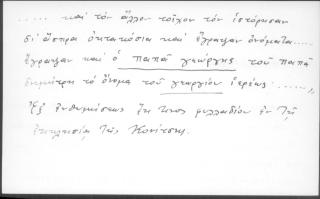 ..... καὶ τὸν ἄλλον τοῖχον τὸν ἱστόρησαν
δι' ἄσπρα ὀκτακόσια καὶ ἔγραψαν ὀνόματα....
ἔγραψαν καὶ ὁ παπᾶ γεώργης τοῦ παπᾶ
δημήτρη τὸ ὄνομα τοῦ γεωργίου ἱερέως ......,
Ἐξ ἐνθυμίσεως ἔκ τινος φυλλαδίου ἐν τῇ
ἐκκλησίᾳ τῆς Κονίτσης.